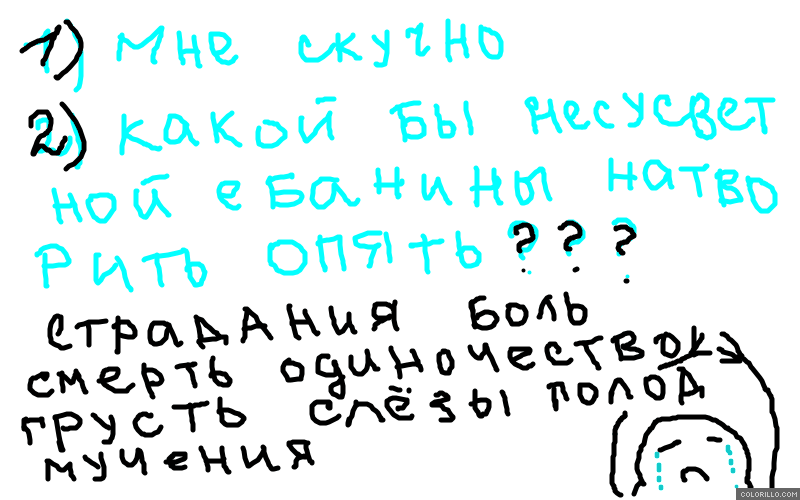 1) мне скучно
2) какой бы несусвет
ной ебанины натво
рить опять ???
страдАния боль
смерть одиночество
грусть слёзы полод
мучения
COLORILLO.COM